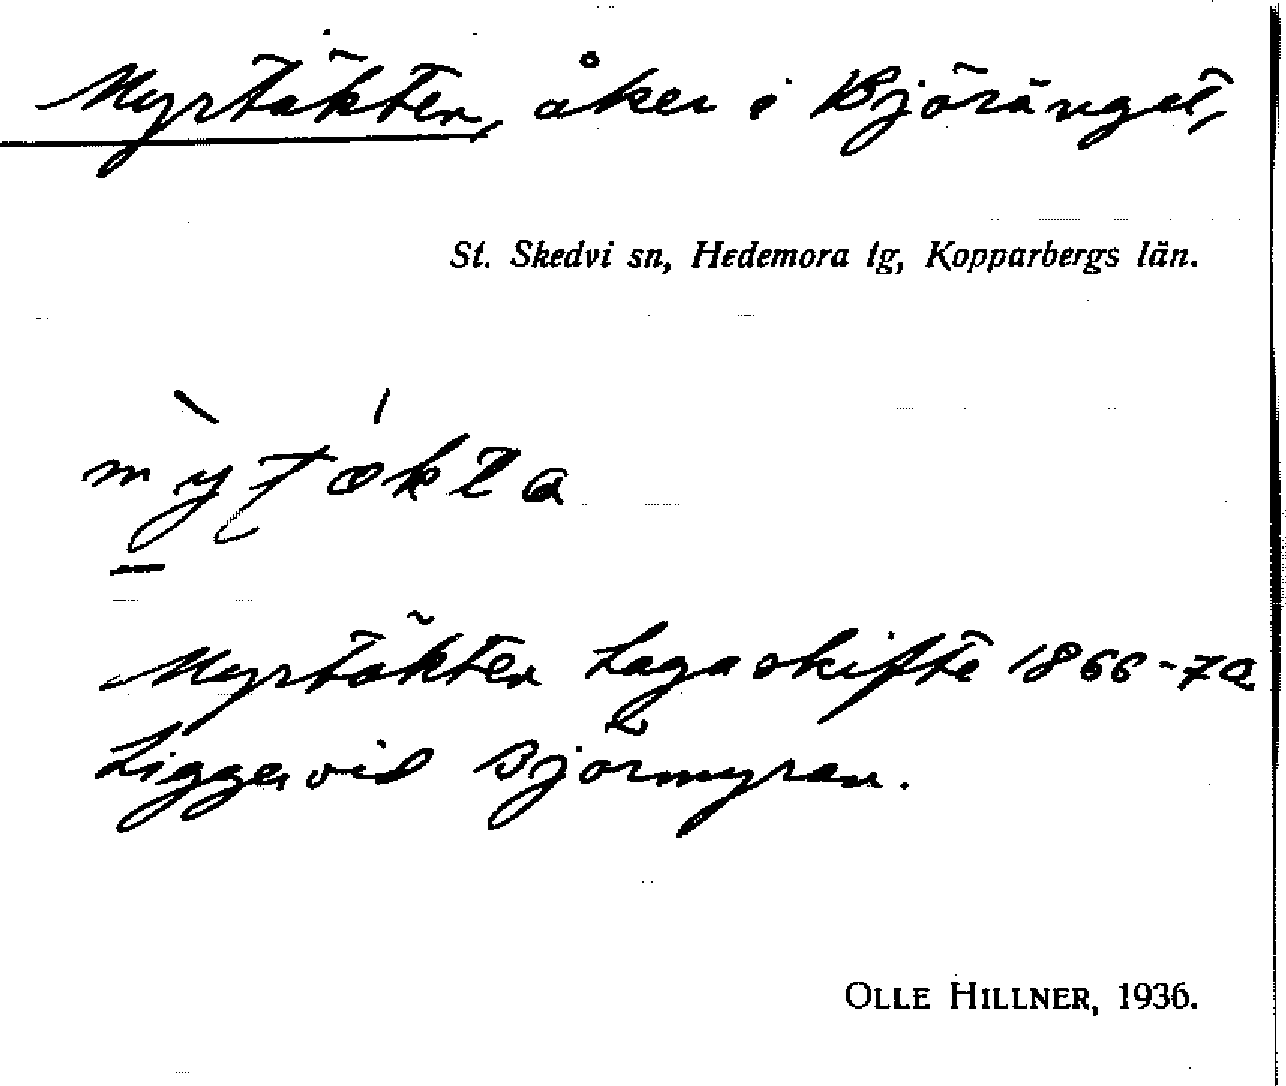 Myrtäkten, åker i Björänget,
St. Skedvi sn, Hedemora tg, Kopparbergs län.
Myrtäkten Lagaskifte 1866-72
Ligger vid Björmyran.
OLLE HILLNER, 1936.